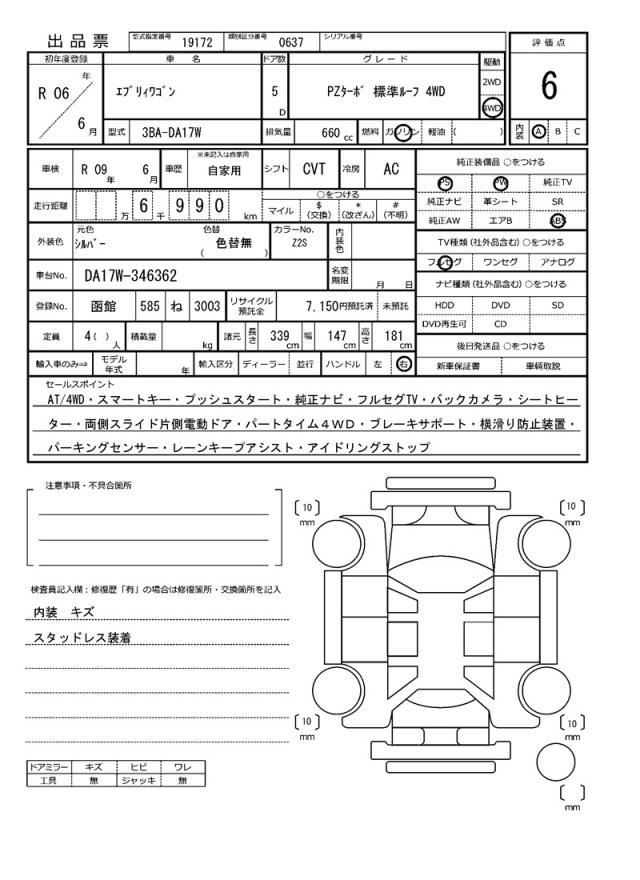 出品票 型式指定番号 19172 類別区分番号 0637 シリアル番号
評価点
6
内装 A B C
初年度登録 車名 ドア数 グレード 駆動
R 06 年 6 月
ｴﾌﾞﾘｨﾜｺﾞﾝ 5 D PZﾀｰﾎﾞ 標準ﾙｰﾌ 4WD
2WD
4WD
型式 3BA-DA17W 排気量 660 cc 燃料 ガソリン 軽油 ( )
車検 R 09 年 6 月 車歴 ※未記入は自家用 自家用 シフト CVT 冷房 AC
走行距離 6 万 千 9 9 0 km
○をつける
マイル $ (交換) * (改ざん) # (不明)
外装色 元色 ｼﾙﾊﾞｰ 色替 ( 色替無 ) カラーNo. Z2S 内装色
車台No. DA17W-346362 名変期限 月 日
登録No. 函館 585 ね 3003 リサイクル預託金 7,150円預託済 未預託
定員 4( ) 人 積載量 kg 諸元 長さ 339 cm 幅 147 cm 高さ 181 cm
輸入車のみ⇒ モデル年式 年 輸入区分 ディーラー 並行 ハンドル 左 右
純正装備品 ○をつける
PS PW 純正TV
純正ナビ 革シート SR
純正AW エアB ABS
TV種類 (社外品含む) ○をつける
フルセグ ワンセグ アナログ
ナビ種類 (社外品含む) ○をつける
HDD DVD SD
DVD再生可 CD
後日発送品 ○をつける
新車保証書 車輌取説
セールスポイント
AT/4WD・スマートキー・プッシュスタート・純正ナビ・フルセグTV・バックカメラ・シートヒー
ター・両側スライド片側電動ドア・パートタイム４ＷＤ・ブレーキサポート・横滑り防止装置・
パーキングセンサー・レーンキープアシスト・アイドリングストップ
注意事項・不具合箇所
検査員記入欄：修復歴「有」の場合は修復箇所・交換箇所を記入
内装 キズ
スタッドレス装着
ドアミラー キズ ヒビ ワレ
工具 無 ジャッキ 無
〔10〕 mm
〔10〕 mm
〔10〕 mm
〔10〕 mm
〔 〕 mm